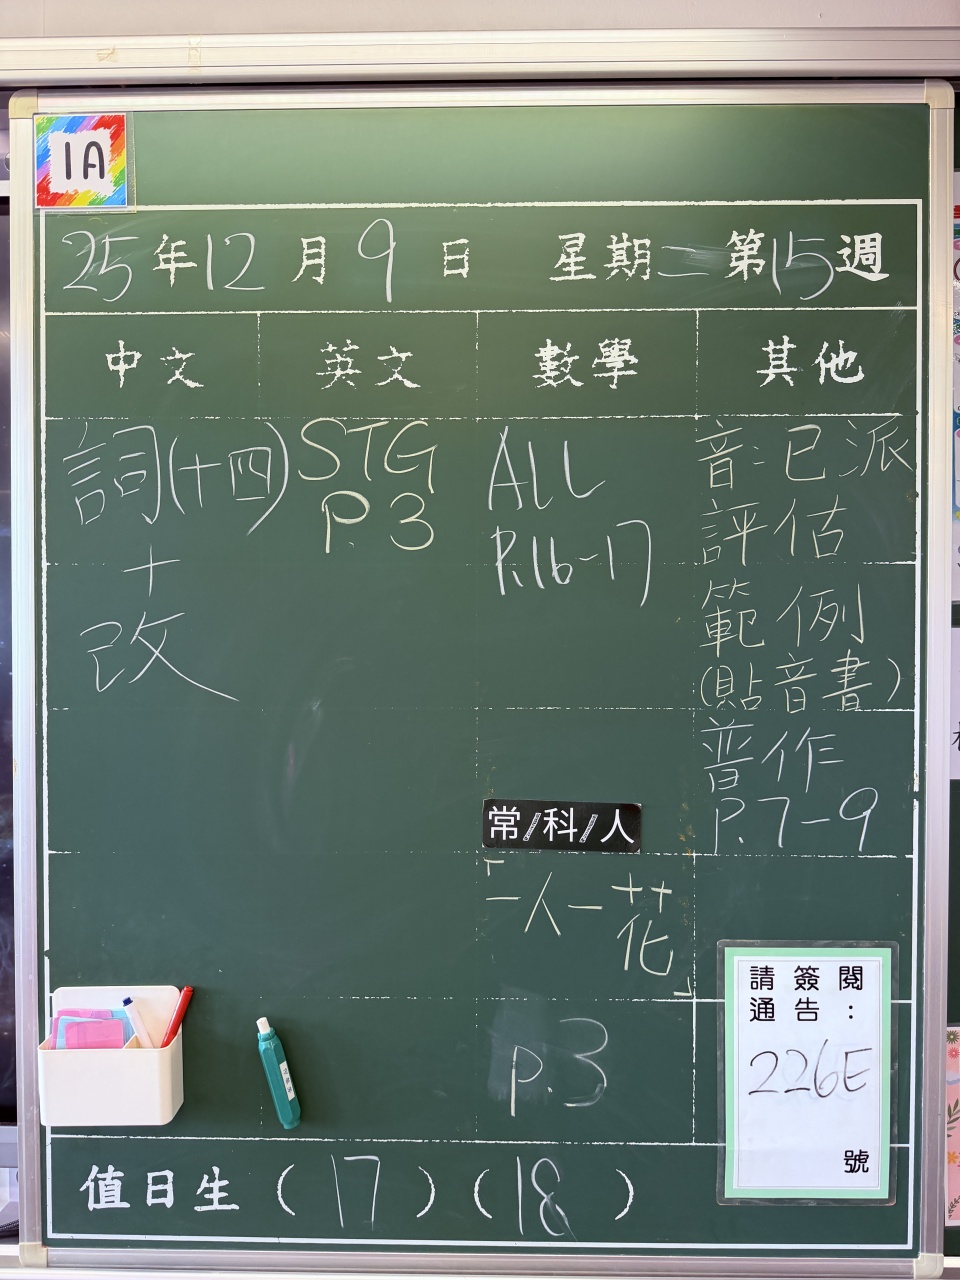 1A
25年12月9日 星期二 第15週
中文 英文 數學 其他
詞(十四)
+
改
STG
P.3
ALL
P.16-17
音:已派
評估
範例
(貼音書)
普作
P.7-9
常/科/人
「一人一花」
p.3
請簽閱
通告:
226E
號
值日生 (17)(18)